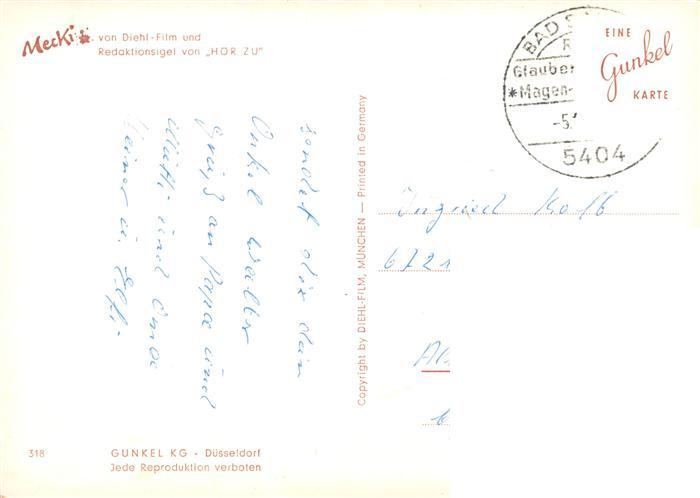 Mecki von Diehl-Film und
Redaktionsigel von „HÖR ZU"
sendet dir dein
Onkel Walter
Gruß an Papa und
Mutti und Omac
Heiner u.
318
GUNKEL KG - Düsseldorf
Jede Reproduktion verboten
Copyright by DIEHL-FILM, MÜNCHEN — Printed in Germany
BAD
Glauber
*Magen-
-5.
5404
EINE
Gunkel
KARTE
Ingried Kolb
6721